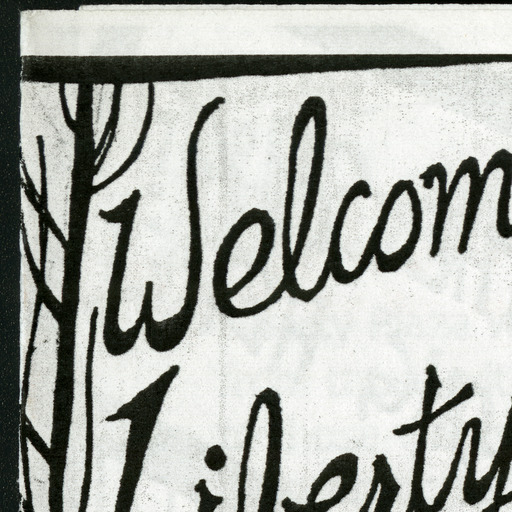 Welcom
Liberty